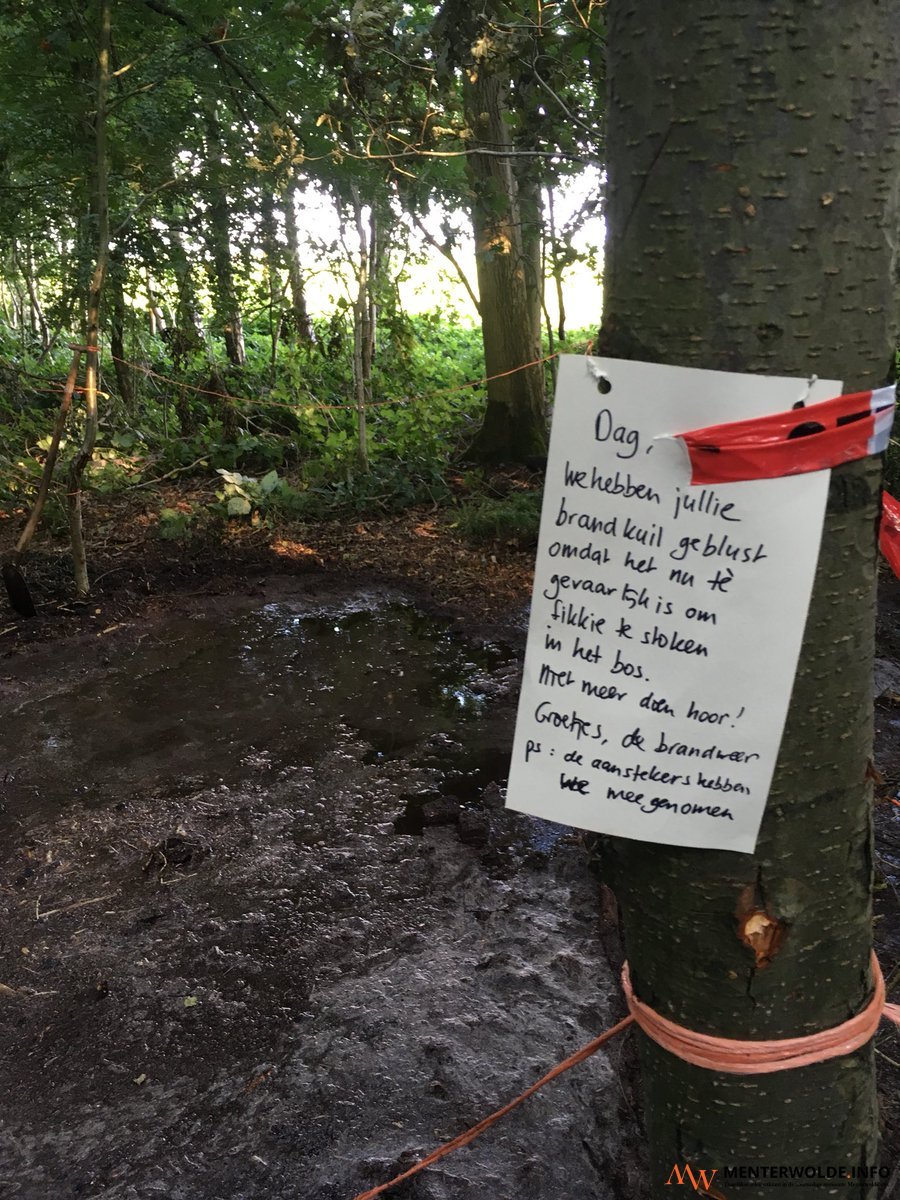 Dag,
we hebben jullie
brandkuil geblust
omdat het nu tè
gevaarlijk is om
fikkie te stoken
in het bos.
Niet meer doen hoor!
Groetjes, de brandweer
ps: de aanstekers hebben
we meegenomen
MW MENTERWOLDE.INFO